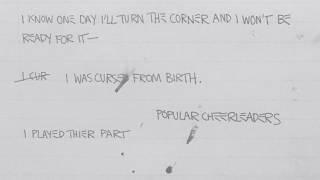 I KNOW ONE DAY I'LL TURN THE CORNER AND I WON'T BE
READY FOR IT—
I CUR I WAS CURSED FROM BIRTH.
POPULAR CHEERLEADERS
I PLAYED THIER PART